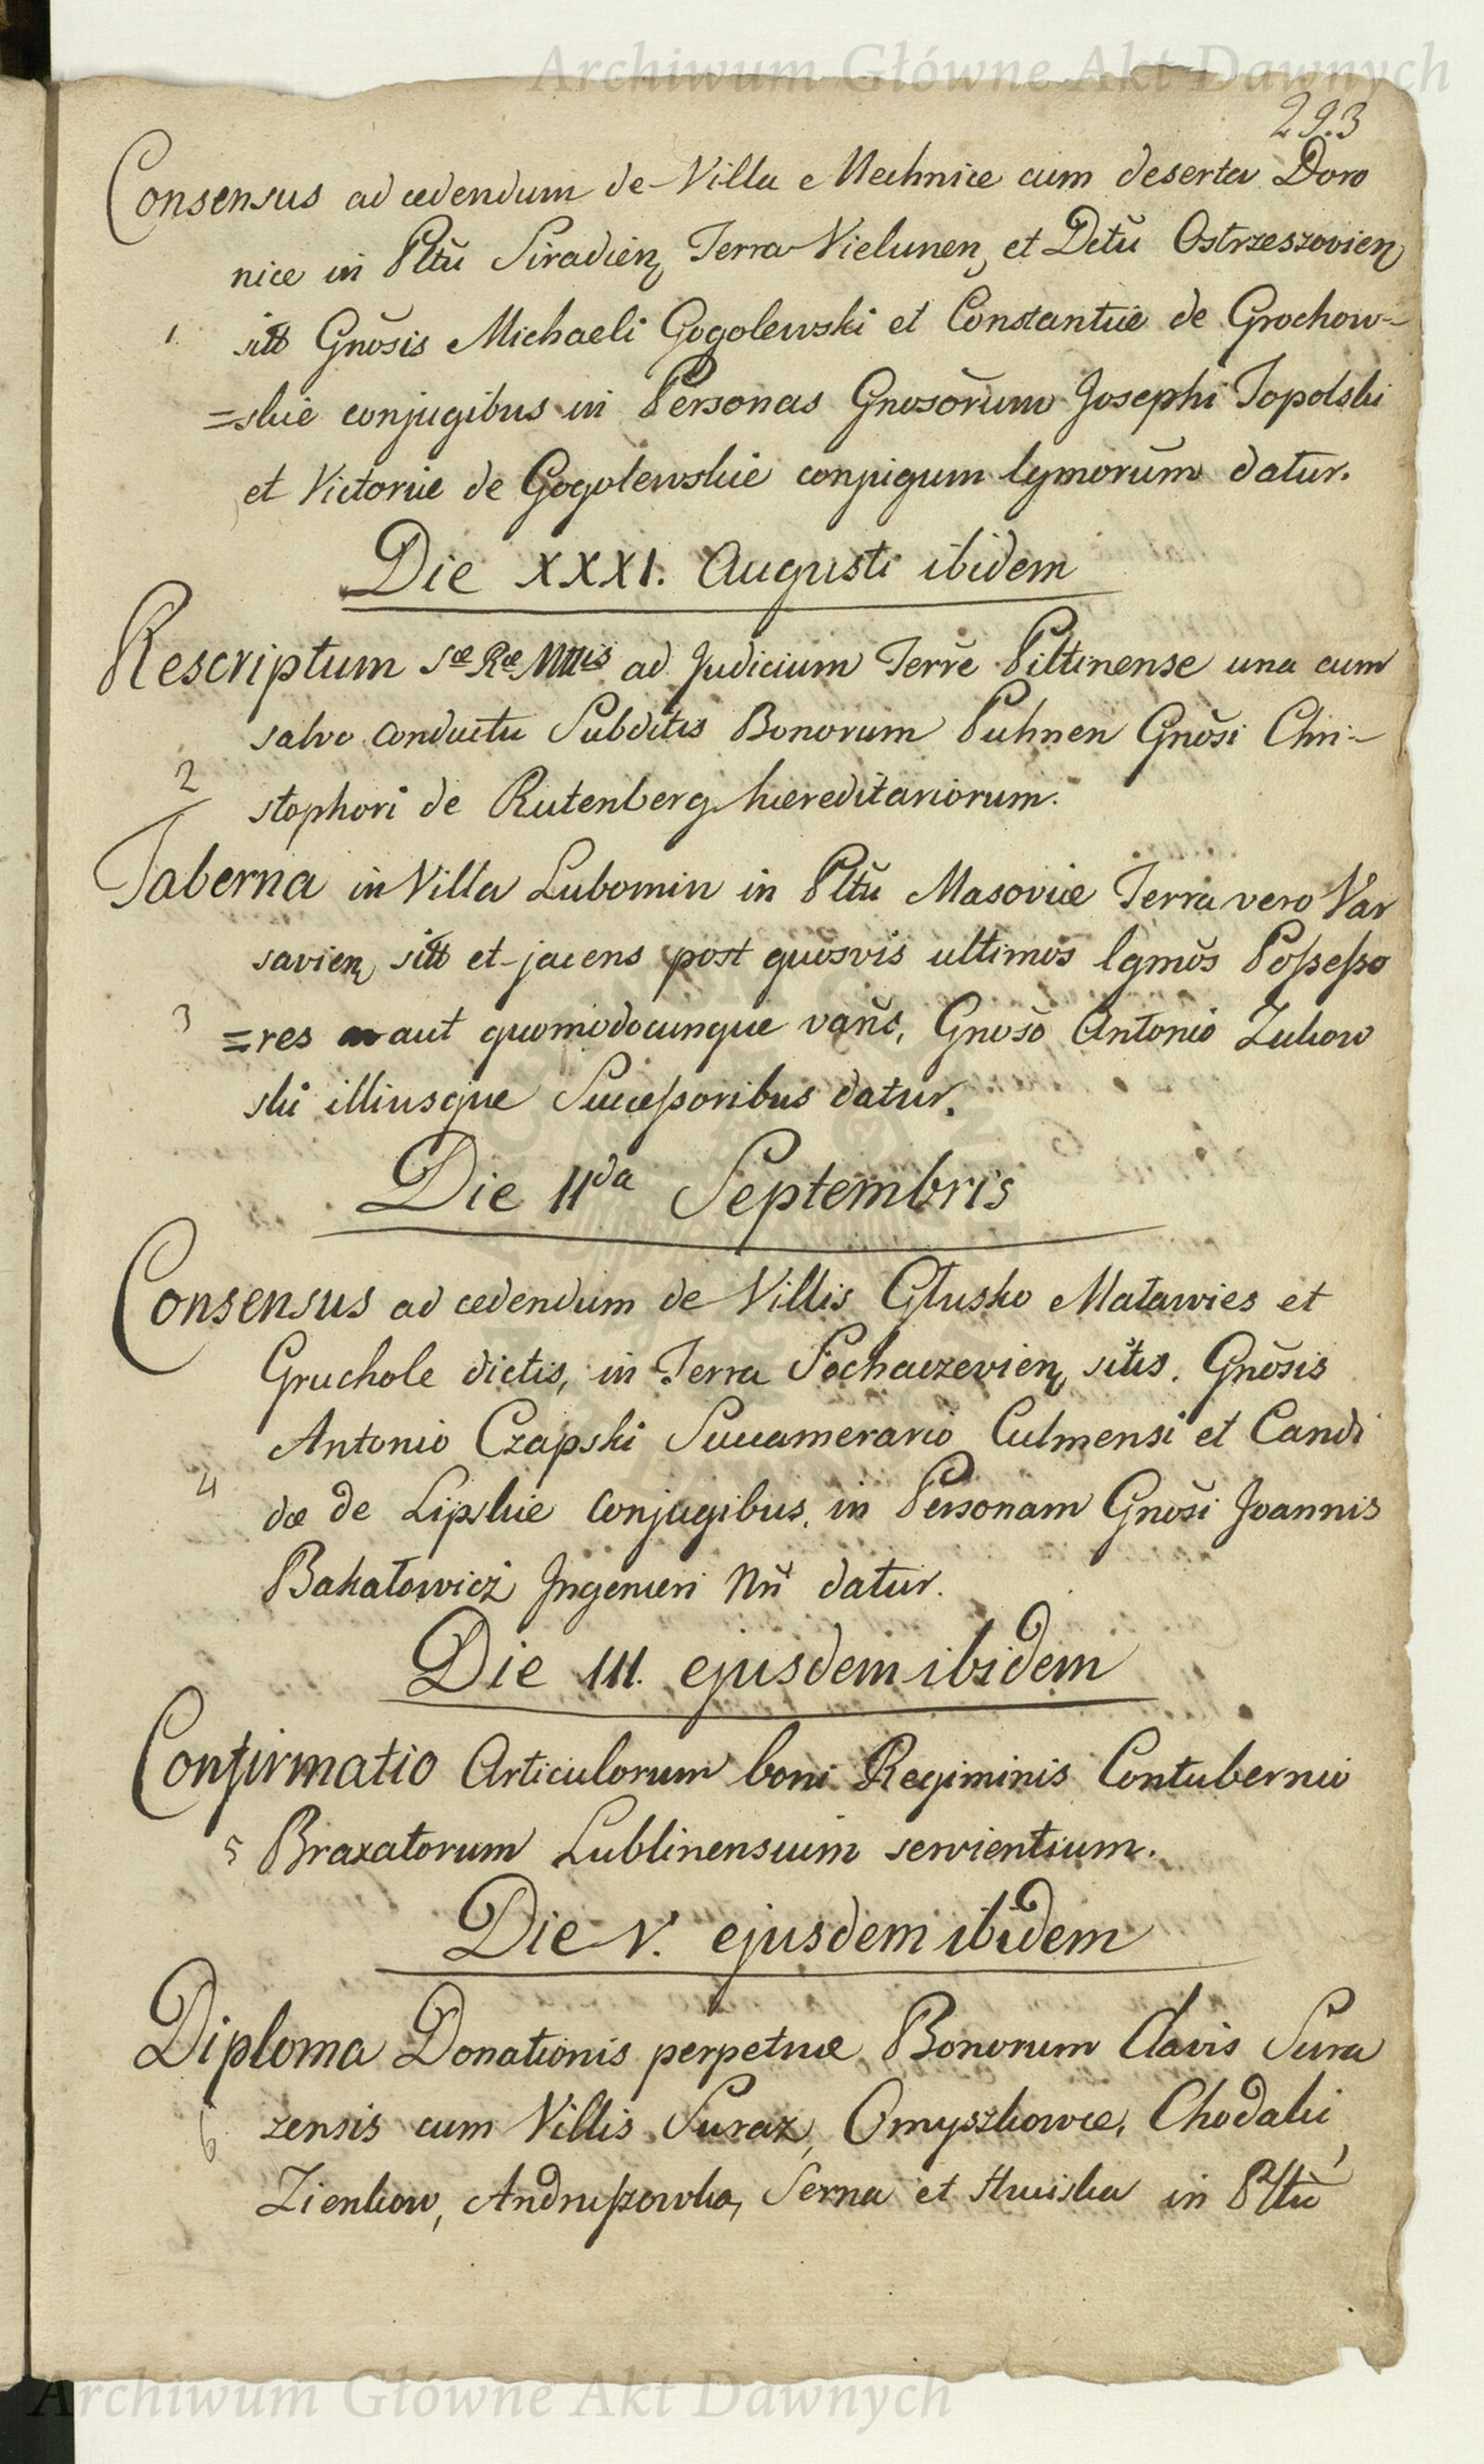 Archiwum Główne Akt Dawnych
293
Consensus ad cedendum de Villa Mechnice cum deserta Doro
nice in Pltũ Siradien, Terra Vielunen, et Dctũ Ostrzeszovien
1. sitt Gnõsis Michaeli Gogolewski et Constantiæ de Grochow-
=skie conjugibus in Personas Gnosõrum Josephi Topolski
et Victoriæ de Gogolewskie conjugum lgmorũm datur.
Die XXXI. Augusti ibidem
Rescriptum Sæ Ræ Mttis ad Judicium Terræ Piltinense una cum
salvo conductu Subditis Bonorum Puhnen Gnõsi Chri-
2 stophori de Rutenberg hæreditariorum.
Taberna in Villa Lubomin in Pltũ Masoviæ Terra vero Var
savien, sitt et jacens post quosvis ultimos lgmõs Possesso
3 =res aut quomodocunque vañs, Gnosõ Antonio Zukow
ski illiusque Successoribus datur.
Die IIda Septembris
Consensus ad cedendum de Villis Głusko Matawies et
Gruchole dictis, in Terra Sochaczevien, sitis. Gnõsis
Antonio Czapski Succamerario Culmensi et Candi
4 dæ de Lipskie conjugibus, in Personam Gnõsi Joannis
Bakałowicz Ingenieri Nrĩ datur.
Die III. ejusdem ibidem
Confirmatio Articulorum boni Regiminis Contubernio
5 Braxatorum Lublinensium servientium.
Die V. ejusdem ibidem
Diploma Donationis perpetuæ Bonorum Clavis Sura
6 zensis cum Villis Suraz, Omyszkowce, Chodaki,
Zienkow, Andruszowka, Serna et Huiska in Pltũ
Archiwum Główne Akt Dawnych